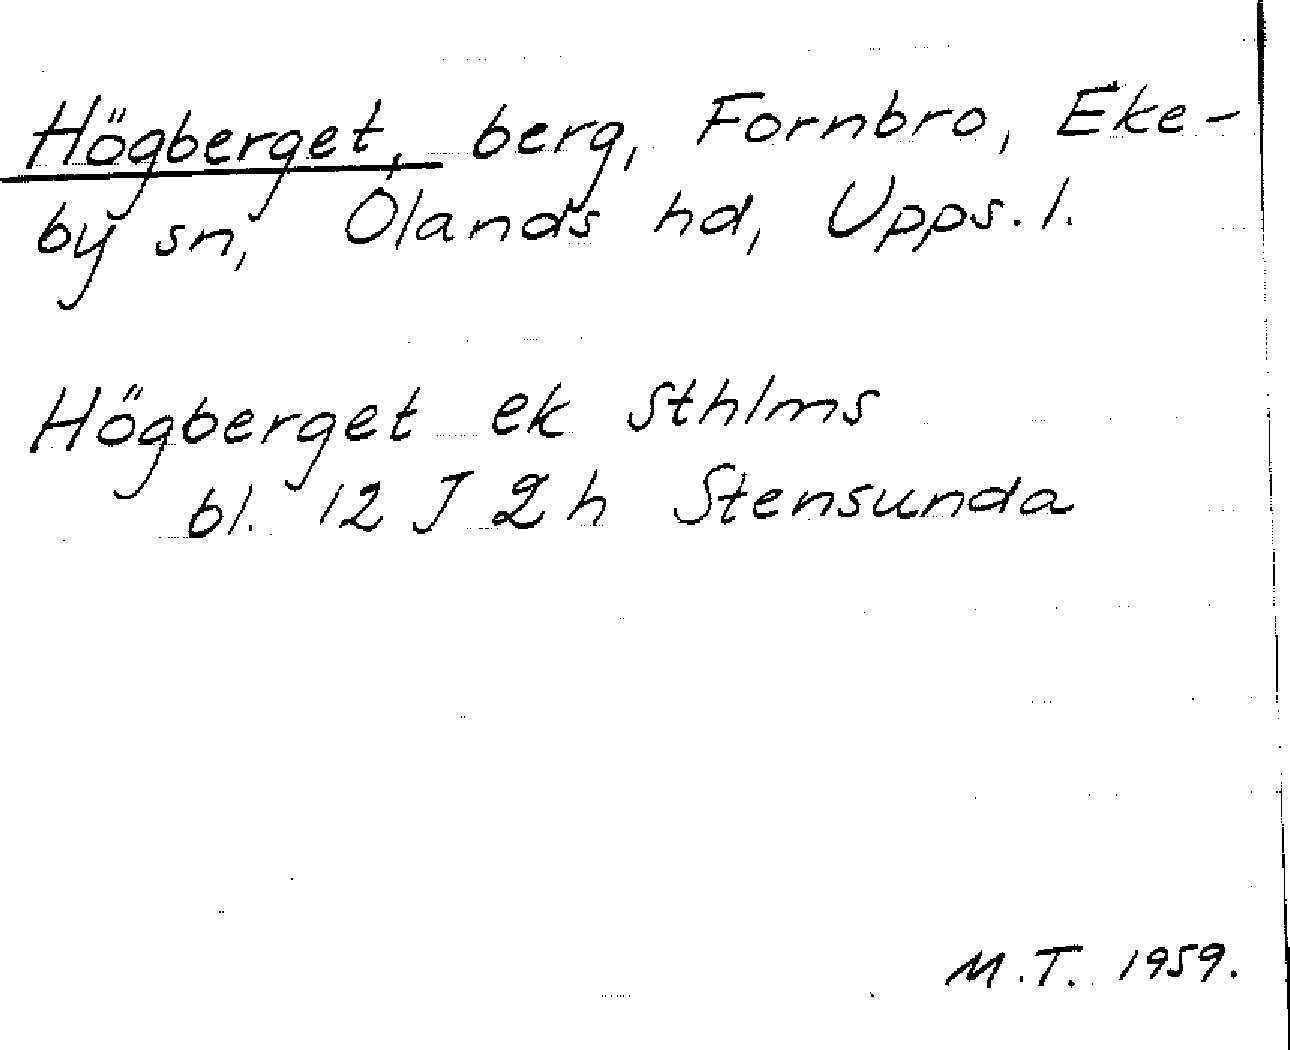 Högberget, berg, Fornbro, Eke-
by sn, Ölands hd, Upps. l.
Högberget ek Sthlms
bl. 12 J 2 h Stensunda
M.T. 1959.